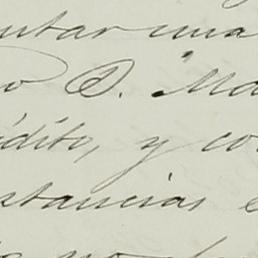 entar una
o D. Ma
édito, y co
stancias e